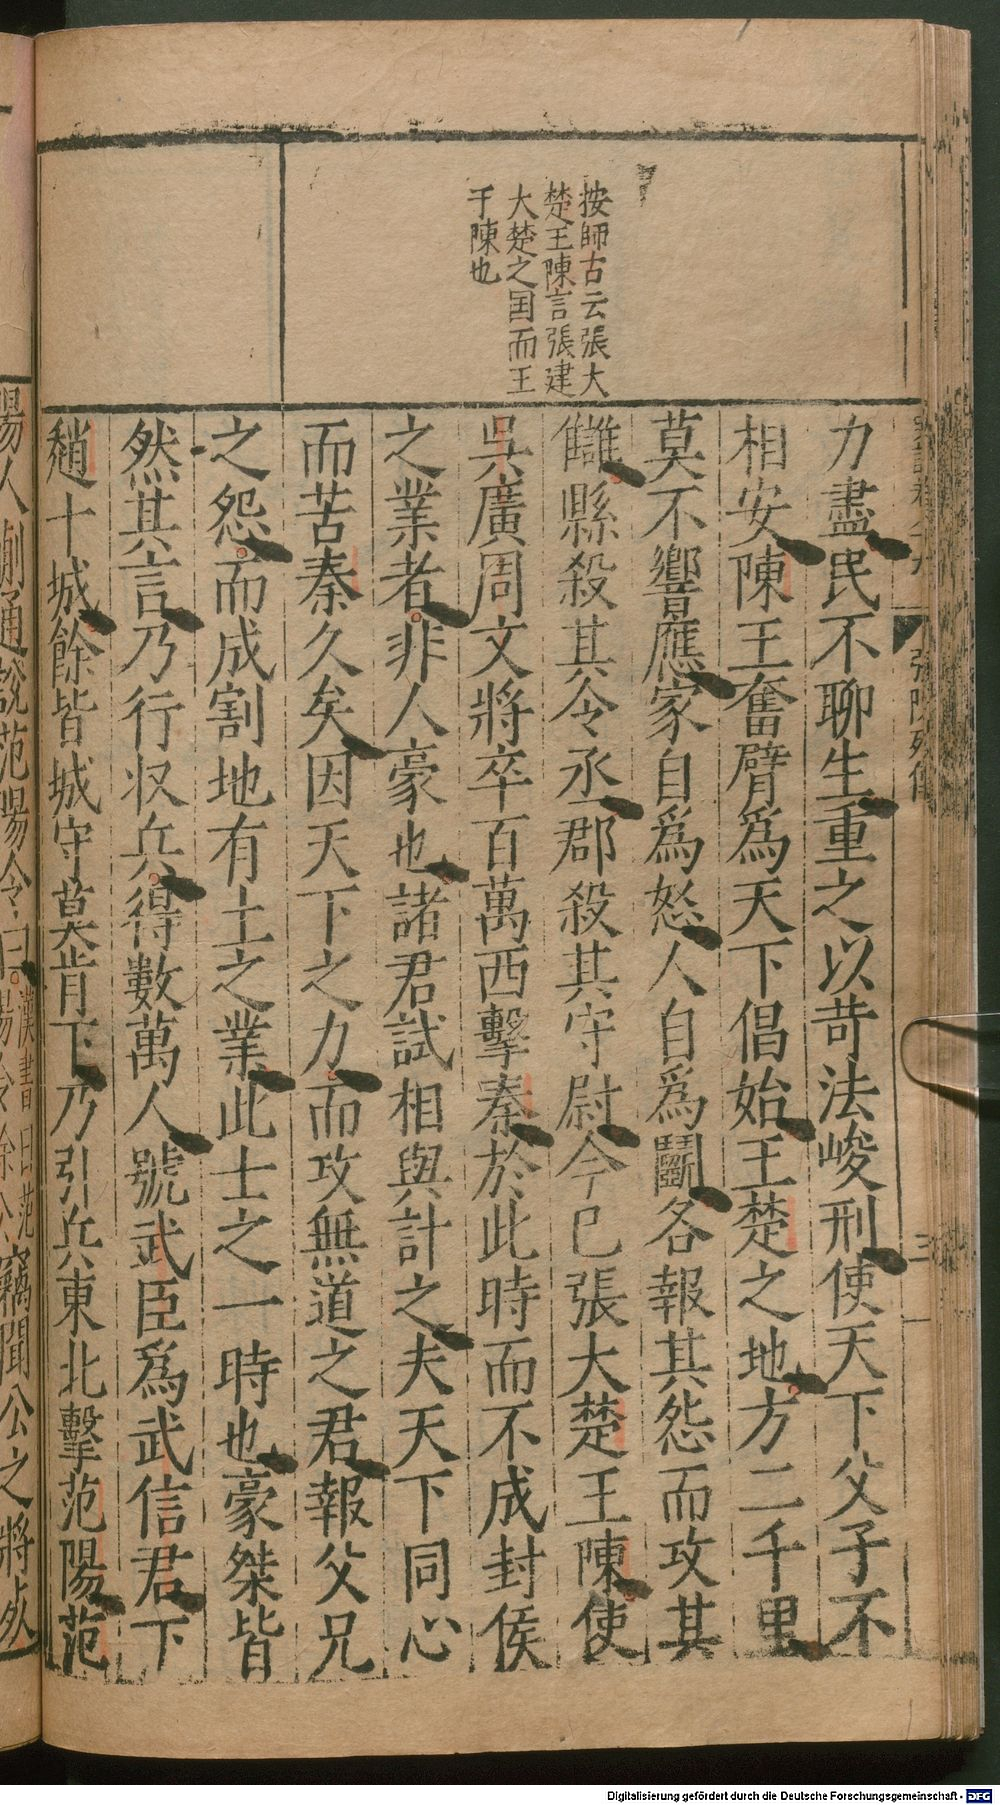 按師古云張大
楚王陳言張建
大楚之国而王
于陳也
力盡民不聊生重之以苛法峻刑使天下父子不
相安陳王奮臂爲天下倡始王楚之地方二千里
莫不響應家自爲怒人自爲鬭各報其怨而攻其
讎縣殺其令丞郡殺其守尉今已張大楚王陳使
吳廣周文將卒百萬西擊秦於此時而不成封侯
之業者非人豪也諸君試相與計之夫天下同心
而苦秦久矣因天下之力而攻無道之君報父兄
之怨而成割地有土之業此士之一時也豪桀皆
然其言乃行収兵得數萬人號武臣爲武信君下
趙十城餘皆城守莫肯下乃引兵東北擊范陽范
陽人蒯通說范陽令曰
漢書曰范
竊聞公之將
Digitalisierung gefördert durch die Deutsche Forschungsgemeinschaft - DFG